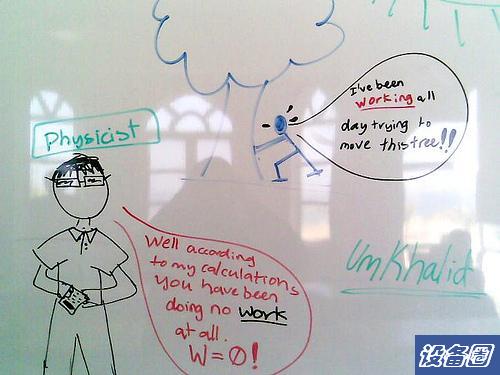 I've been
working all
day trying to
move this tree!!
Physicist
Well according
to my calculations
you have been
doing no work
at all.
W = 0!
UmKhalid
设备圈